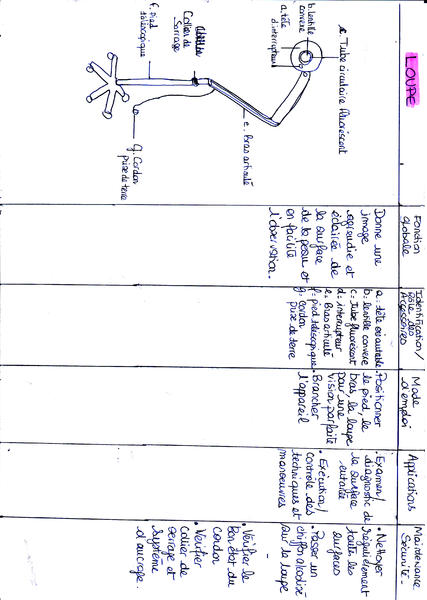 LOUPE
b. lentille
convexe
a. tête
d. interrupteur
c. Tube circulaire fluorescent
Collier de
Serrage
f. pied
télescopique
e. Bras articulé
g. Cordon
prise de terre
Fonction
Globale
Donne une
image
agrandie et
éclairée de
la surface
de la peau et
en facilite
l'observation.
Identification/
Rôle des
Accessoires
a: tête orientable
b: lentille convexe
c: Tube fluorescent
d: interrupteur
e: Bras articulé
f: pied télescopique
g: Cordon
prise de terre
Mode
d'emploi
• Positionner
le pied, le
bras, la loupe
pour une
vision parfaite
• Brancher
l'appareil
Applications
• Examen/
diagnostic de
la surface
cutanée
• Exécution/
contrôle des
techniques et
manoeuvres
Maintenance
Sécurité.
• Nettoyer
régulièrement
toute les
surfaces
• Passer un
chiffon alcoolisé
sur la loupe
• Vérifier le
Bon état du
cordon
• Vérifier
Collier de
serrage et
système
d'accroge.